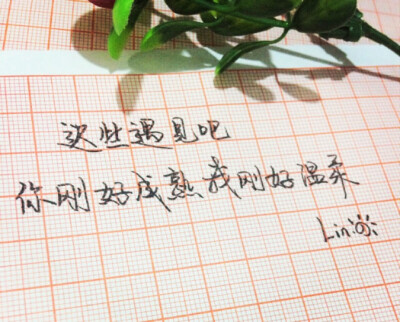 这些遇见吧
你刚好成熟我刚好温柔
Lin